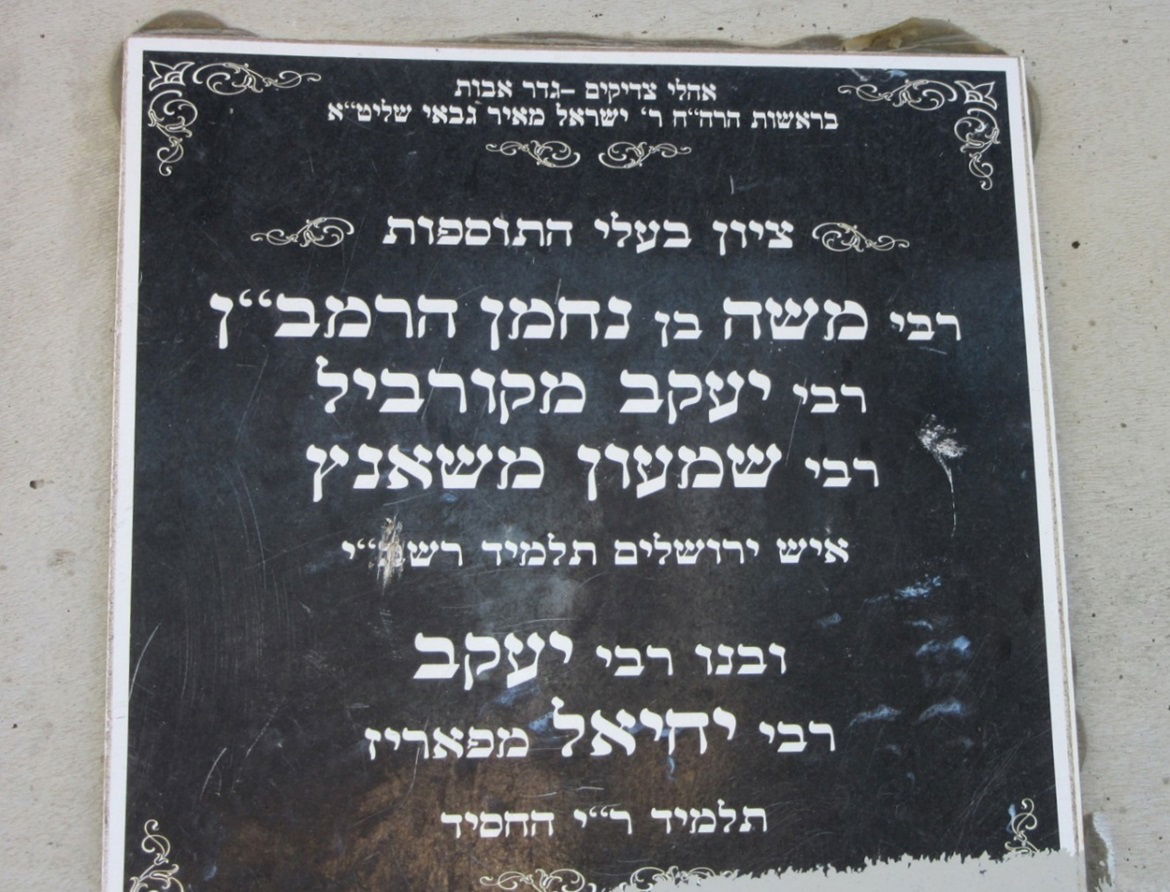 אהלי צדיקים –גדר אבות
בראשות הרה״ח ר׳ ישראל מאיר גבאי שליט״א
ציון בעלי התוספות
רבי משה בן נחמן הרמב״ן
רבי יעקב מקורביל
רבי שמעון משאנץ
איש ירושלים תלמיד
ובנו רבי יעקב
רבי יחיאל מפאריז
תלמיד ר״י החסיד